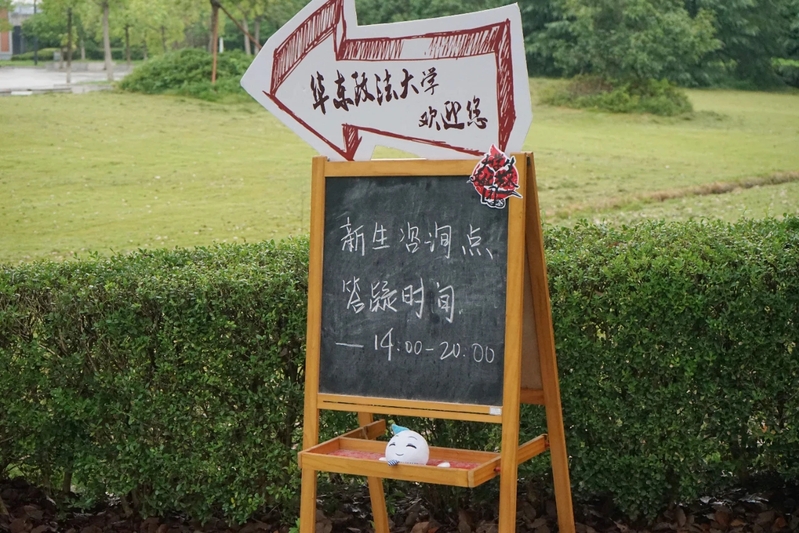 华东政法大学
欢迎您
新生咨询点
答疑时间
—14:00-20:00